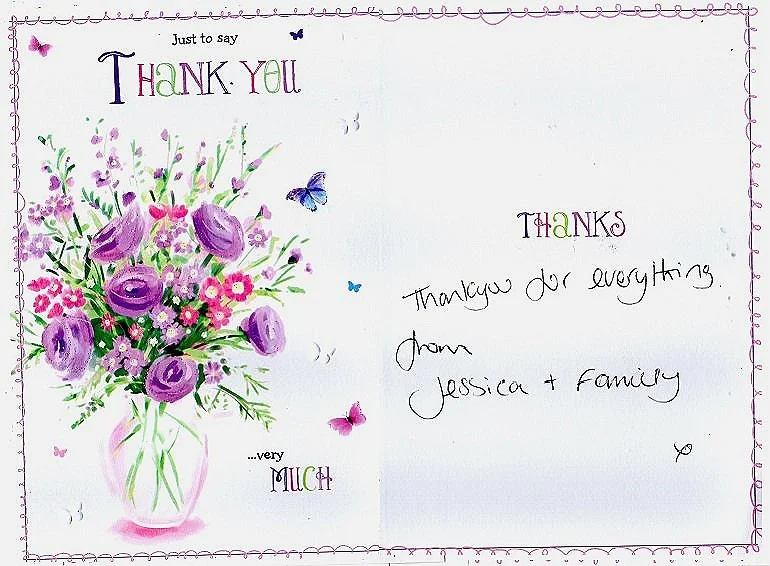 Just to say
THANK YOU
...very
MUCH
THANKS
Thankyou for everything
from
Jessica + Family
x